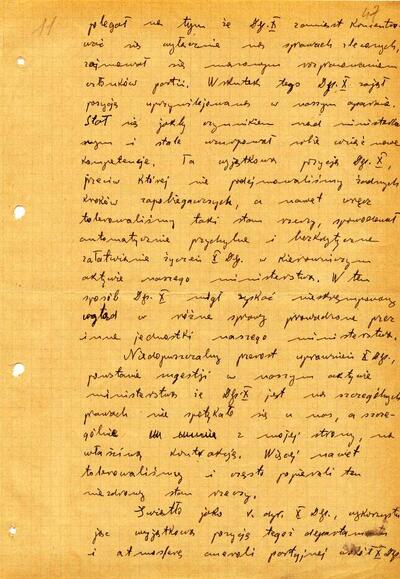 11
47
polegał na tym że Dep. X zamiast koncentro-
wać się wyłącznie na sprawach zleconych,
zajmował się masowym rozpracowaniem
członków partii. Wskutek tego Dep. X zajął
pozycję uprzywilejowaną w naszym aparacie.
Stał się jakby czynnikiem nad ministerial-
nym i stale uzurpował sobie coraz nowe
kompetencje. Ta wyjątkowa pozycja Dep. X,
przeciw której nie podejmowaliśmy żadnych
kroków zapobiegawczych, a nawet wręcz
tolerowaliśmy taki stan rzeczy, spowodował
automatycznie przychylne i bezkrytyczne
załatwianie życzeń X Dep. w kierowniczym
aktywie naszego ministerstwa. W ten
sposób Dep. X mógł zyskać nieskrępowany
wgląd w różne sprawy prowadzone przez
inne jednostki naszego ministerstwa.
Niedopuszczalny przerost uprawnień X Dep.,
powstanie sugestji w naszym aktywie
ministerstwa że Dep. X jest na szczególnych
prawach nie spotykało się u nas, a szcze-
gólnie z mojej strony, na
właściwą kontrakcję. Więcej nawet
tolerowaliśmy i często popierali ten
niezdrowy stan rzeczy.
Światło jako v. dyr. X Dep., wykorzystu-
jąc wyjątkową pozycję tegoż departamentu
i atmosferę partyjnej X Dep.